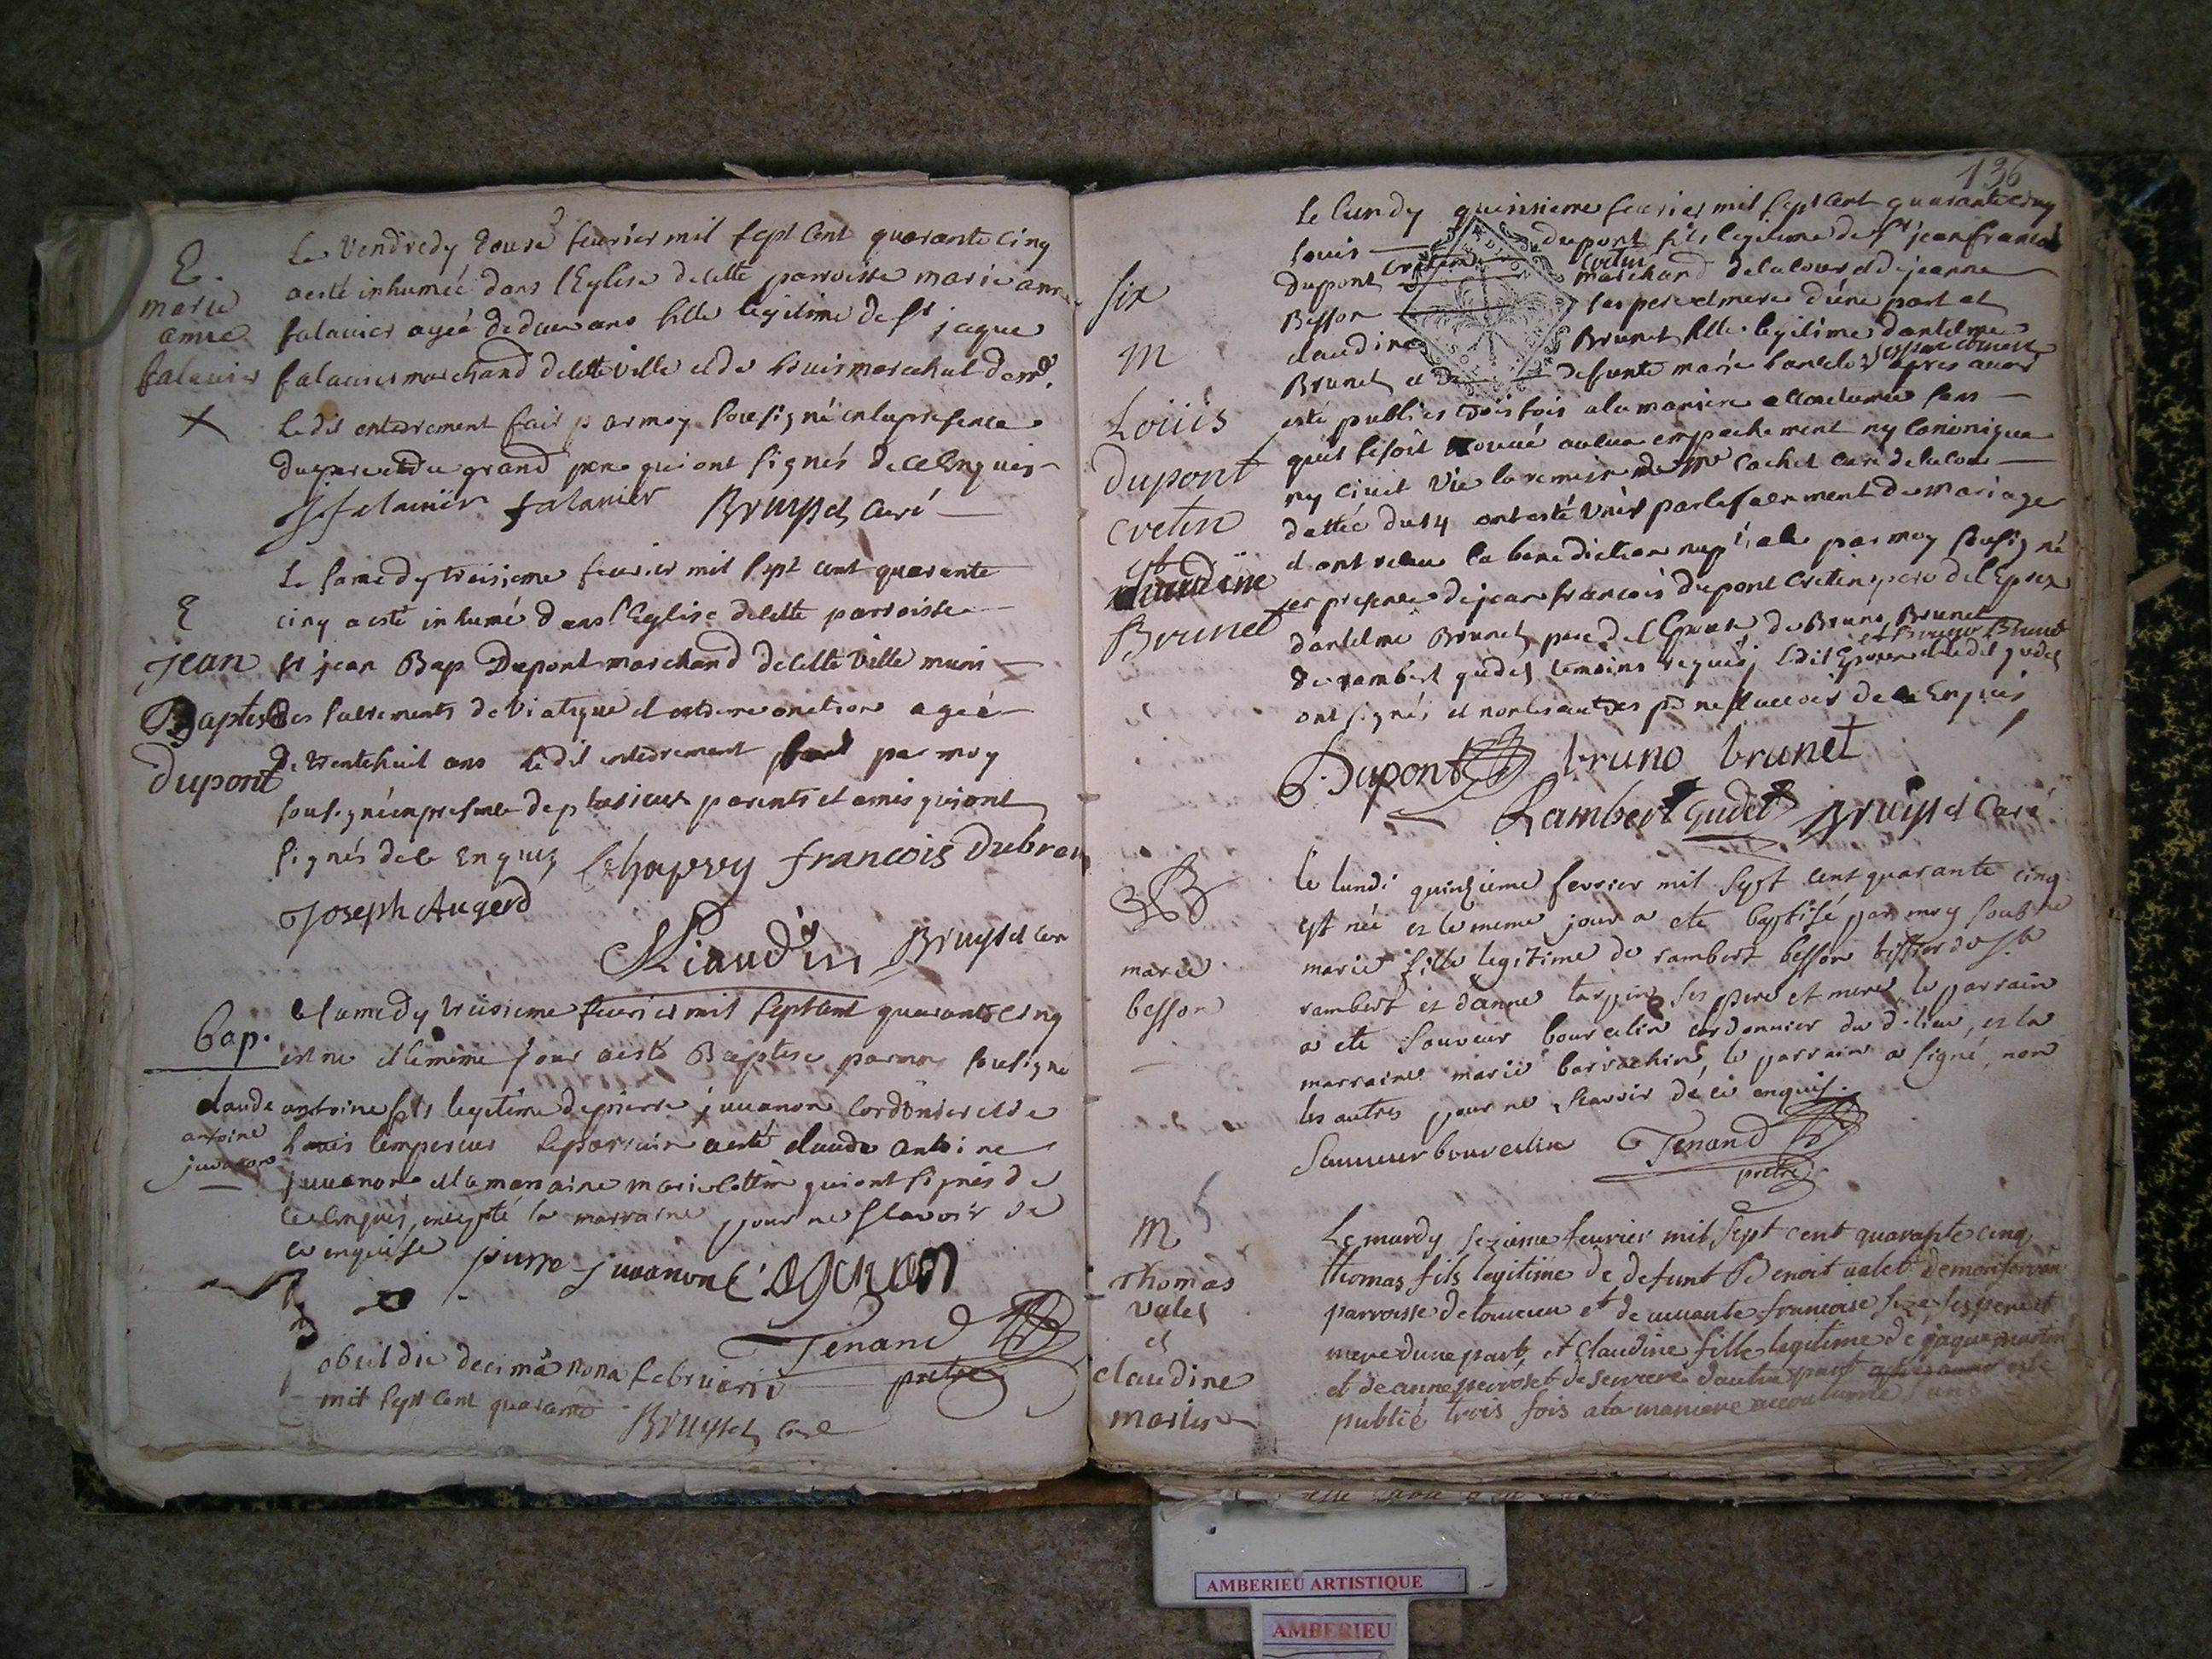 E.
marie
anne
falavier
X
Le Vendredy douze fevrier mil sept cent quarante cinq
a esté inhumée dans l'Eglise de cette parroisse marie anne
falavier agée de deux ans fille legitime de sr jaque
falavier marchand de cette ville et de Louise marechal
Ledit enterrement fait par moy sousigné en la presence
du pere et du grand pere qui ont signés de ce Enquis
falavier falavier Bruyset Curé
E
jean
Baptiste
dupont
Le samedy treisieme fevrier mil sept cent quarente
cinq a esté inhumé dans l'Eglise de cette parroisse
sr jean Bap Dupont marchand de cette Ville muni
des sacrements de Viatique et extreme onction agée
de trente huit ans Ledit enterrement fait par moy
sousigné en presence de plusieurs parents et amis qui ont
signés de ce Enquis Chapuy francois Dubreu
Joseph Augerd
Bruyset Cure
Bap.
claude
antoine
juvanon
Le samedy treisieme fevrier mil sept cent quarante cinq
est ne et le meme jour a esté Baptise par moy sousigné
antoine fils legitime de pierre juvanon Cordonier et de
Louise Lempereur le parrain a esté claude antoine
juvanon et la marraine marie cottin qui ont signés de
ce Enquis, excepté la marraine pour ne scavoir de
ce enquise pierre juvanon
Tenand
pretre
obiit die decima nona februarii
mil sept cent quarante
Bruyset Curé
136
six
m
Loüis
dupont
cretin
et
claudine
Brunet
Le Lundy quinsieme fevrier mil sept cent quarante cinq
Louis dupont fils legitime de sr jean francois
Dupont Cretin marchand de la cour et de jeanne
Besson ses pere et mere d'une part et
claudine Brunet fille legitime d'antelme
Brunet et de defunte marie apres avoir
esté publies trois fois a la maniere accoutumée sans
qu'il se soit trouvé aucun empechement ny Canonique
ny Civil Vu la remise de Mre Cochet Curé de la Cour
dattée du 14 ont esté Unis par le sacrement de Mariage
et ont receu la benediction nuptiale par moy sousigné
en presence de jean francois Dupont Cretin pere de l'Epoux
d'antelme Brunet pere de l'Epouse de Bruno Brunet
de rambert gudet temoins requis ledit Epoux et Bruno Brunet et ledit gudet
ont signés et non les autres pr ne scavoir de ce Enquis
Dupont bruno brunet
Rambert Gudet Bruyset Curé
B
marie
besson
le lundi quinzieme fevrier mil sept cent quarante cinq
est née et le meme jour a ete baptisé par moy soubne
marie fille legitime de rambert besson tissier de St
rambert et d'anne tarpin ses pere et mere, le parrain
a ete Sauveur bourcelin cordonnier du d. lieu, et la
marraine marie barrachin, le parrain a signé, non
les autres pour ne scavoir de ce enquis.
Sauveur bourcelin Tenand
pretre
M
Thomas
valet
et
claudine
martin
Le mardy sezieme fevrier mil sept cent quarante cinq
thomas fils legitime de defunt Benoit valet de montferran
parroisse de toucieu et de vivante francoise size ses pere et
mere d'une part, et claudine fille legitime de jaque martin
et de anne perroset de serriere d'autre part apres avoir esté
publié trois fois a la maniere accoutumée sans
AMBERIEU ARTISTIQUE
AMBERIEU